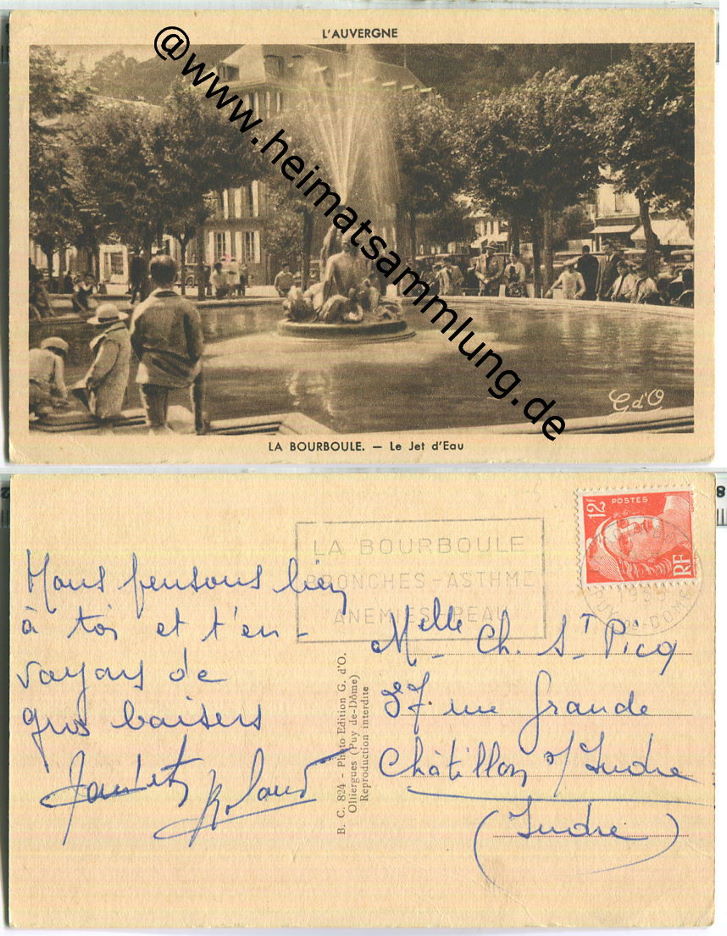 L'AUVERGNE
@www.heimatsammlung.de
G d'O
LA BOURBOULE. — Le Jet d'Eau
12F POSTES
RF
LA BOURBOULE
BRONCHES-ASTHME
ANEMIES-PEAU
PUY-DE-DOME
Nous pensons bien
à toi et t'en-
voyons de
gros baisers
Roland
B. C. 824 - Photo Edition G. d'O.
Olliergues (Puy de-Dôme)
Reproduction interdite
Melle Ch. St Picq
37 rue Grande
Châtillon s/Indre
(Indre)